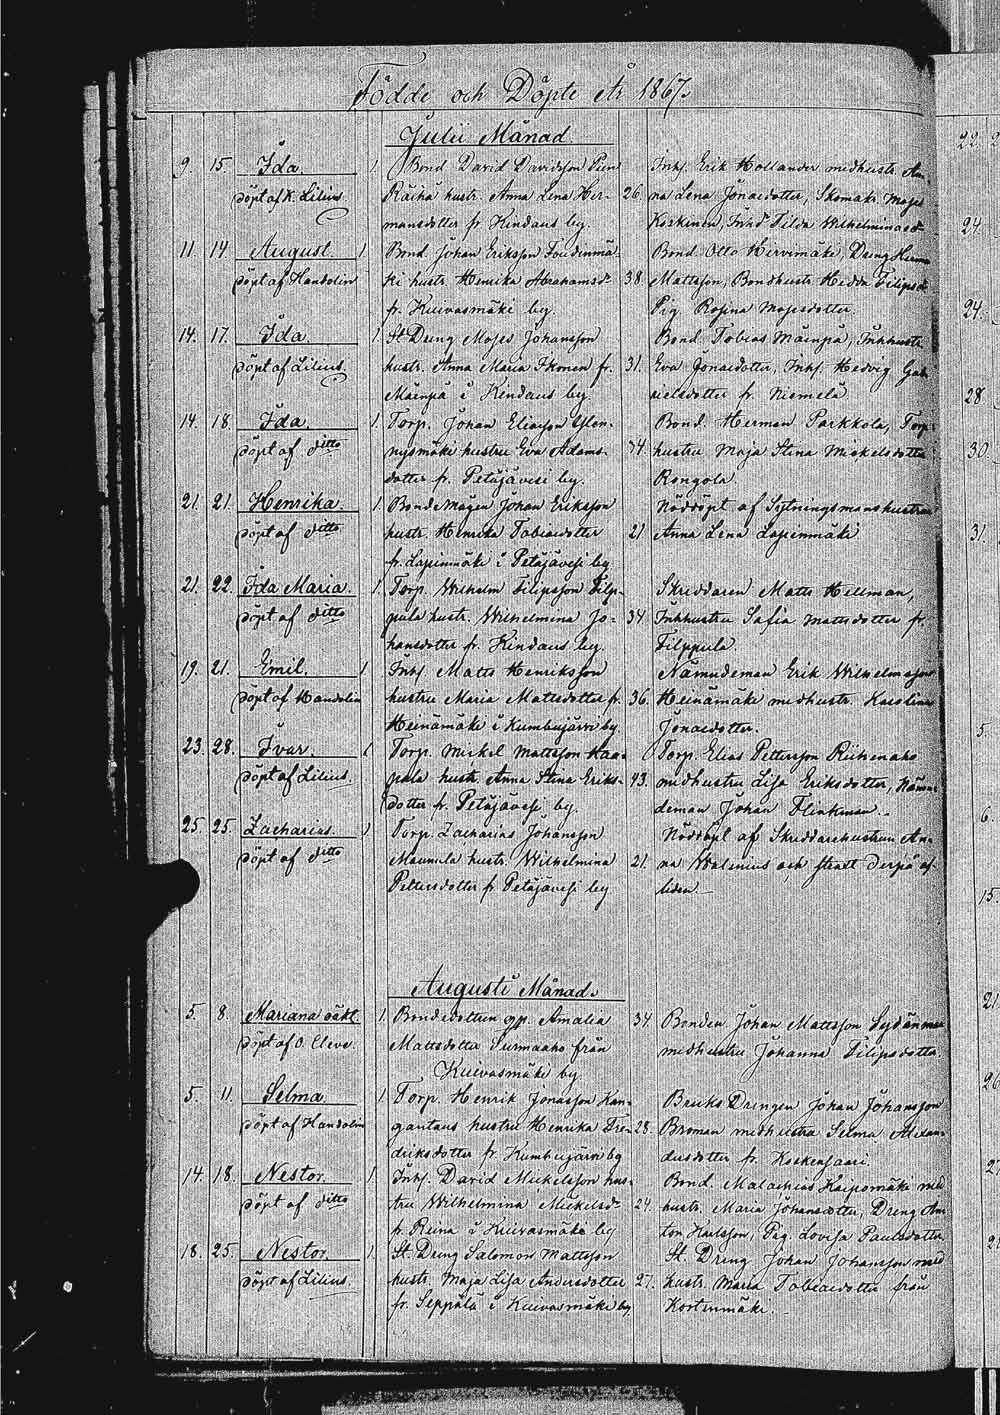 Födde och Döpte År 1867.
Julii Månad.
9. 15. Ida. 1. Bond David Davidsson Pien Inhs. Erik Hollander medhustr. An-
döpt af K. Lilius Räihä hustr. Anna Lena Her- 26. na Lena Jonasdotter, Skomak. Moses
mansdotter fr Kindaus by. Koskinen, Inhs Tilda Wilhelminasd
11. 14. August. 1. Bond Johan Eriksson Toudinmä- Bond. Otto Hirvimäki, Dreng Herman
döpt af Handolin ki hustr. Henrika Abrahamsd. 38. Mattsson, Bondhustr Hedda Filipsd
fr. Kuivasmäki by. Pig. Rosina Mosesdotter.
14. 17. Ida. 1. St Dreng Moses Johansson Bond. Tobias Mäenpä, Inhhustr
döpt af Lilius. hustr. Anna Maria Ikonen fr. 31. Eva Jonasdotter, Inhs. Hedvig Gab
Mäenpä i Kindaus by. rielsdotter fr. Niemelä
14. 18. Ida. 1. Torp. Johan Eliasson Ylen- Bond. Herman Parkkola, Torp
döpt af ditto nysmäki hustru Eva Adams- 34. hustru Maja Stina Mickelsdotter
dotter fr. Petäjävesi by. Rongola.
21. 21. Henrika. 1. Bondemågen Johan Eriksson Nöddöpt af Sytningsmanshustrun
döpt af ditto hustr. Henrika Tobiasdotter 21. Anna Lena Lapinmäki
fr. Lapinmäki i Petäjävesi by
21. 22. Ida Maria. 1. Torp. Wilhelm Filipsson Filp- Skreddaren Matts Hellman,
döpt af ditto pula hustr. Wilhelmina Jo- 34. Inhhustru Sofia Mattsdotter fr.
hansdotter fr. Kindaus by. Filppula.
19. 21. Emil. 1 Inhs Matts Henriksson Nämndeman Erik Wilhelmsson
döpt af Handolin hustru Maria Mattsdotter fr. 36. Heinämäki medhustr. Karolina
Heinämäki i Kumbujärvi by. Jonasdotter.
23. 28. Ivar. 1 Torp. Mickel Mattsson Kaa- Torp. Elias Pettersson Riihenaho
döpt af Lilius. pala hustr. Anna Stina Eriks- 43. medhustru Lisa Eriksdotter, Nämn-
dotter fr. Petäjävesi by. deman Johan Flinkman.
25. 25. Zacharias. 1 Torp. Zacharias Johansson Nöddöpt af Skreddarehustrun An-
döpt af ditto Maunula hustr. Wilhelmina 21 na Walenius och strax derpå af-
Pettersdotter fr Petäjävesi by liden.
Augusti Månad.
5. 8. Mariana oäkt. 1. Bondedottern ogp. Amalia 34. Bonden Johan Mattsson Sydänmaa
döpt af O. Cleve. Mattsdotter Surmaaho från medhustru Johanna Filipsdotter
Kuivasmäki by.
5. 11. Selma. 1. Torp. Henrik Jonasson Kan- Bruks Drengen Johan Johansson
döpt af Handolin gantaus hustru Henrika Fre- 23. Broman medhustru Selma Alexan-
driksdotter fr. Kumbujärvi by dersdotter fr. Koskensaari.
14. 18. Nestor. 1. Inhs. David Mickelsson hus- Bond. Malachias Kaipomäki med
döpt af ditto tru Wilhelmina Mickelsd. 24. hustr. Maria Johansdotter, Dreng An
fr. Reina i Kuivasmäki by ton Karlsson, Pig. Lovisa Paulsdotter.
18. 25. Nestor. 1. St. Dreng Salomon Mattsson St. Dreng Johan Johansson med
döpt af Lilius. hustr. Maja Lisa Andersdotter 27. hustr. Maria Tobiasdotter från
fr. Seppälä i Kuivasmäki by Kortenmäki.